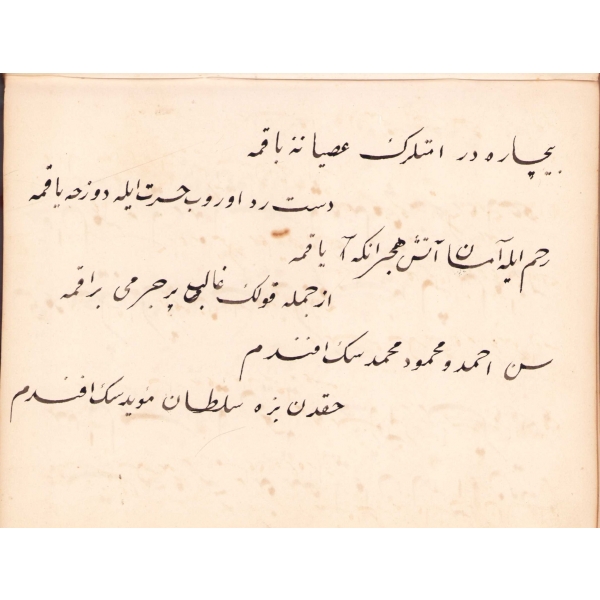 بیچاره در امتلرک عصیاننه باقمه
دست رد اوروب حسرت ایله دوزخه یاقمه
رحم ایله آمان آتش هجرانکه آ یاقمه
از جمله قولک غالب پر جرمی براقمه
سن احمد و محمود محمدسک افندم
حقدن بزه سلطان مؤیدسک افندم